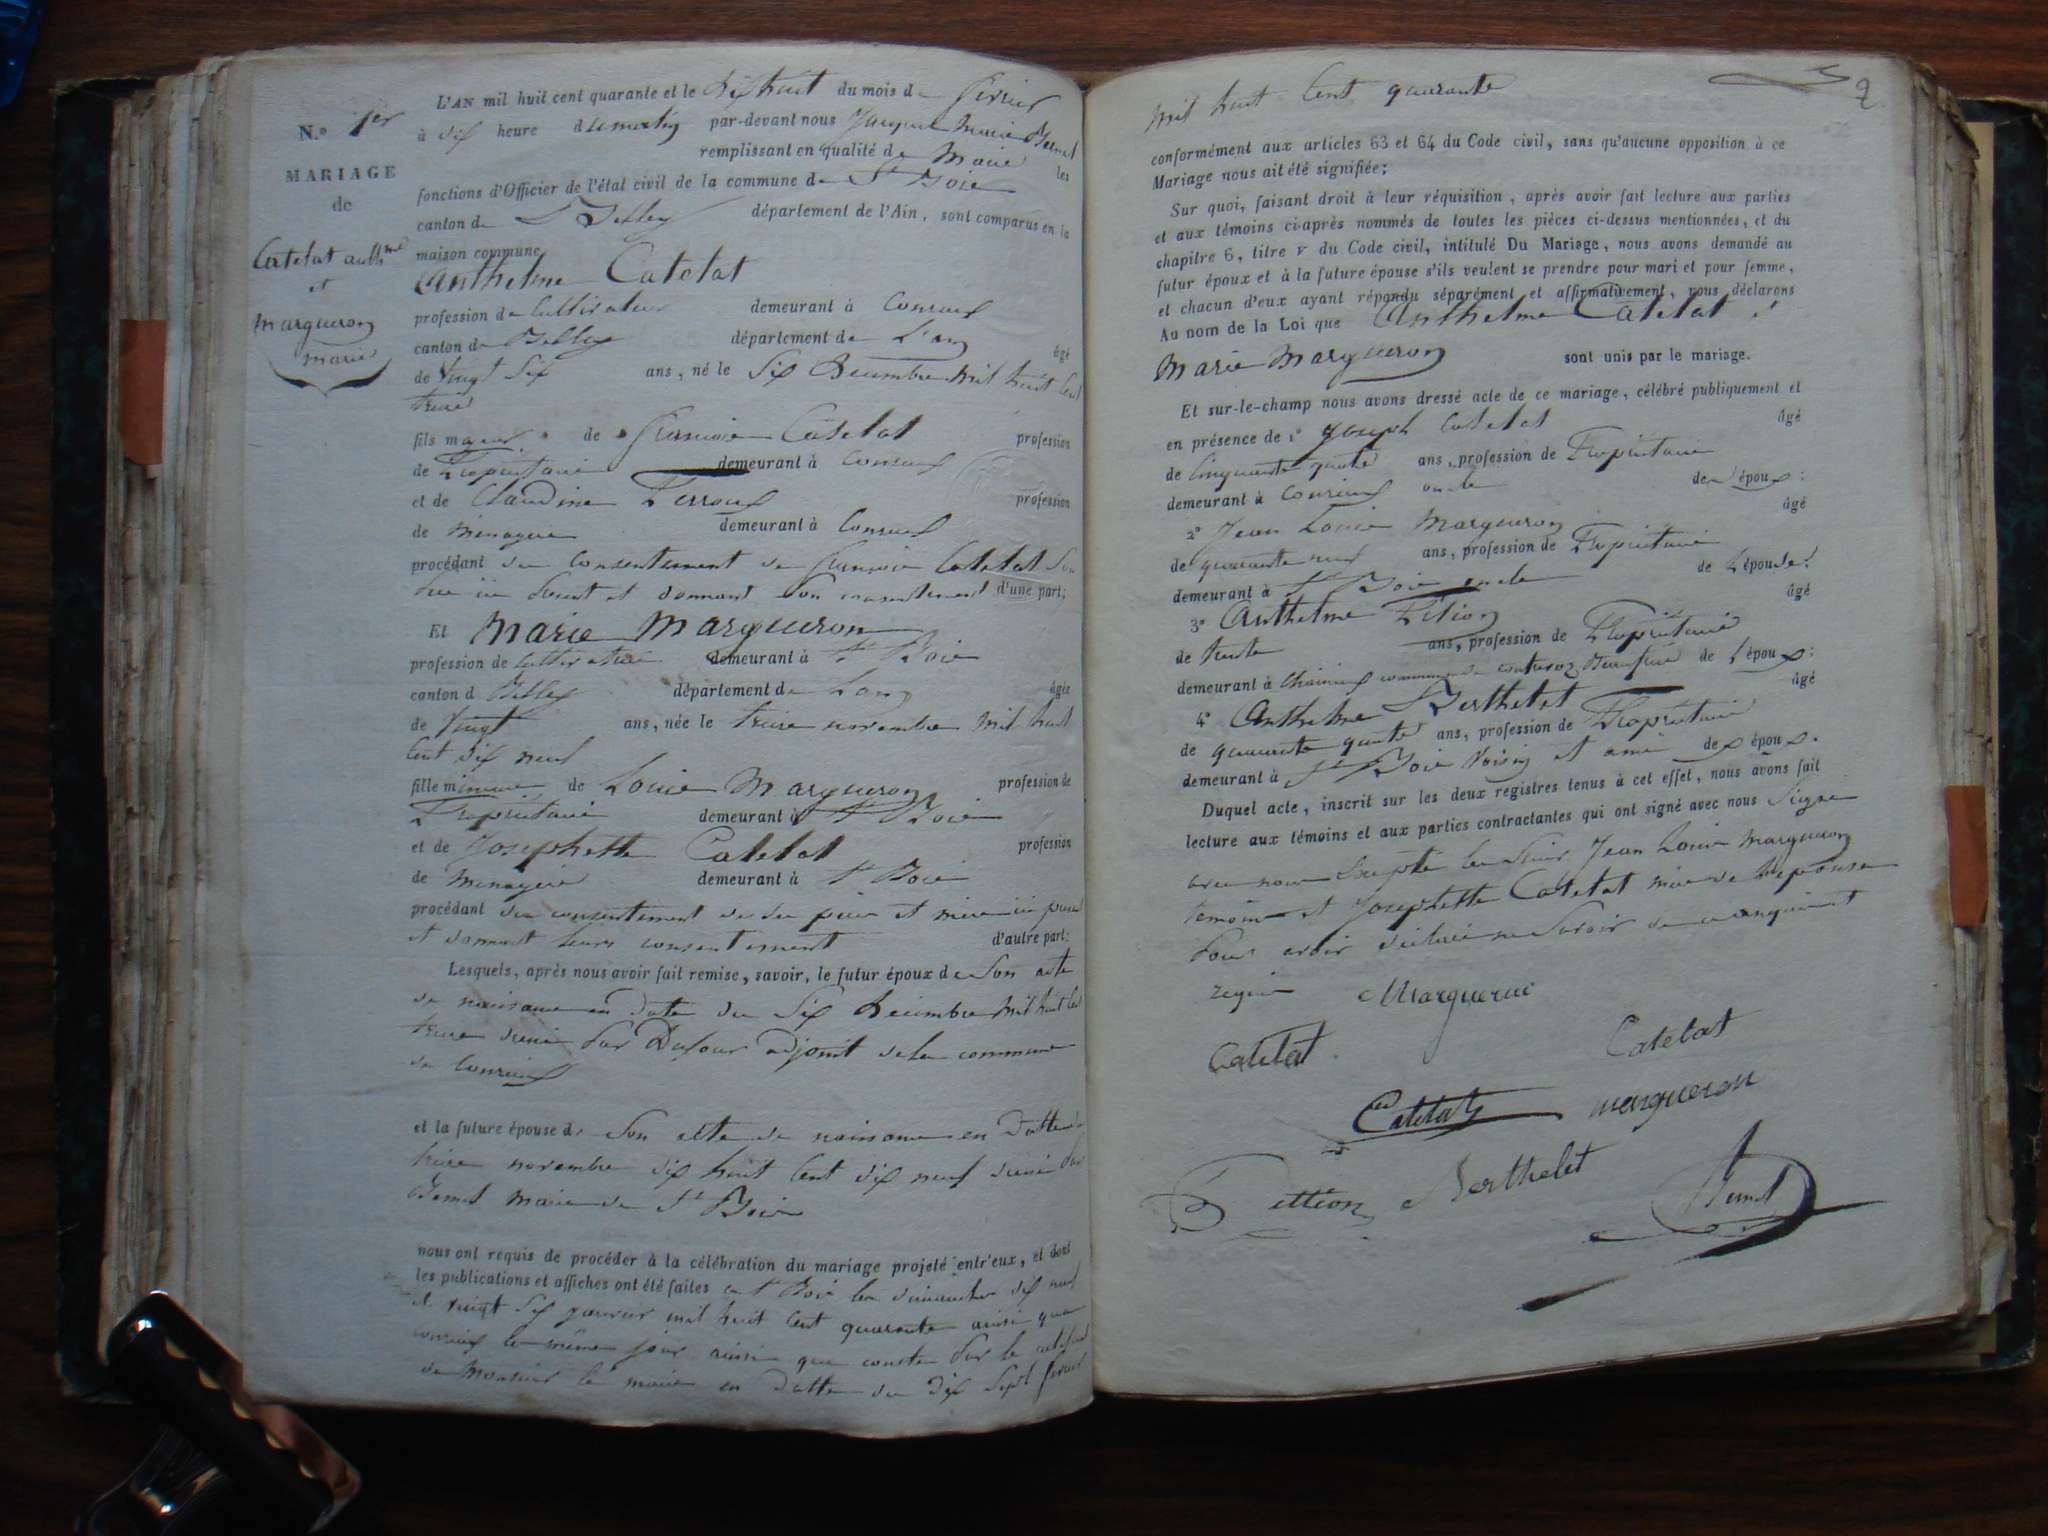 N.º 1er
MARIAGE
de
Catelat anth.me
et
Margueron
marie
L'AN mil huit cent quarante et le dix huit du mois de fevrier
à dix heure du matin par-devant nous Jacques Marie
remplissant en qualité de Maire les
fonctions d'Officier de l'état civil de la commune de St Boie
canton de Belley département de l'Ain, sont comparus en la
maison commune
Anthelme Catelat
profession de Cultivateur demeurant à Conzieux
canton de Belley département de L'ain âgé
de Vingt Six ans, né le Six Decembre mil huit Cent
treize
fils majeur de francois Catelat profession
de Propriétaire demeurant à Conzieux
et de Claudine Perroux profession
de Menagere demeurant à Conzieux
procédant du consentement de francois Catelat Son
Pere ici present et donnant Son consentement d'une part;
Et Marie Margueron
profession de Cultivatrice demeurant à St Boie
canton de Belley département de Lain âgée
de Vingt ans, née le treize novembre Mil huit
Cent dix neuf
fille mineure de Louis Margueron profession de
Propriétaire demeurant à St Boie
et de Josephette Catelat profession
de Menagere demeurant à St Boie
procédant du consentement de ses pere et mere ici present
et donnant leurs consentement d'autre part;
Lesquels, après nous avoir fait remise, savoir, le futur époux de Son acte
de naissance en Date du Six Decembre Mil huit Cent
treize Par Dufour adjoint de la commune
de Conzieux
et la future épouse de Son acte de naissance en Datte du
treize novembre dix huit Cent dix neuf Par
maire de St Boie
nous ont requis de procéder à la célébration du mariage projeté entr'eux, et dont
les publications et affiches ont été faites a St Boie les dimanches dix neuf
et vingt Six janvier mil huit Cent quarante ainsi qua
Conzieux le même jour ainsi que conste Par le certificat
de Monsieur le maire en Datte du Dix Sept fevrier
2
mil huit Cent quarante
conformément aux articles 63 et 64 du Code civil, sans qu'aucune opposition à ce
Mariage nous ait été signifiée;
Sur quoi, faisant droit à leur réquisition, après avoir fait lecture aux parties
et aux témoins ci-après nommés de toutes les pièces ci-dessus mentionnées, et du
chapitre 6, titre v du Code civil, intitulé Du Mariage, nous avons demandé au
futur époux et à la future épouse s'ils veulent se prendre pour mari et pour femme,
et chacun d'eux ayant répondu séparément et affirmativement, nous déclarons
Au nom de la Loi que Anthelme Catelat et
Marie Margueron sont unis par le mariage.
Et sur-le-champ nous avons dressé acte de ce mariage, célébré publiquement et
en présence de 1º Joseph Catelat âgé
de Cinquante quatre ans, profession de Propriétaire
demeurant à Conzieux oncle de l'époux:
2º Jean Louis Margueron âgé
de quarante neuf ans, profession de Propriétaire
demeurant à St Boie oncle de L'épouse:
3º Anthelme Pition âgé
de trente ans, profession de Propriétaire
demeurant à commune de Beaufrere de L'époux:
4º Anthelme Berthelet âgé
de quarante quatre ans, profession de Propriétaire
demeurant à St Boie Voisin et ami de époux.
Duquel acte, inscrit sur les deux registres tenus à cet effet, nous avons fait
lecture aux témoins et aux parties contractantes qui ont signé avec nous Signé
avec nous Excepté les Jean Louis Margueron
temoin et Josephette Catelat mere de l'epouse
Pour avoir déclaré ne Savoir de ce enquis et
requis
Margueron
Catelat Catelat
Catelat margueron
Pittion Berthelet